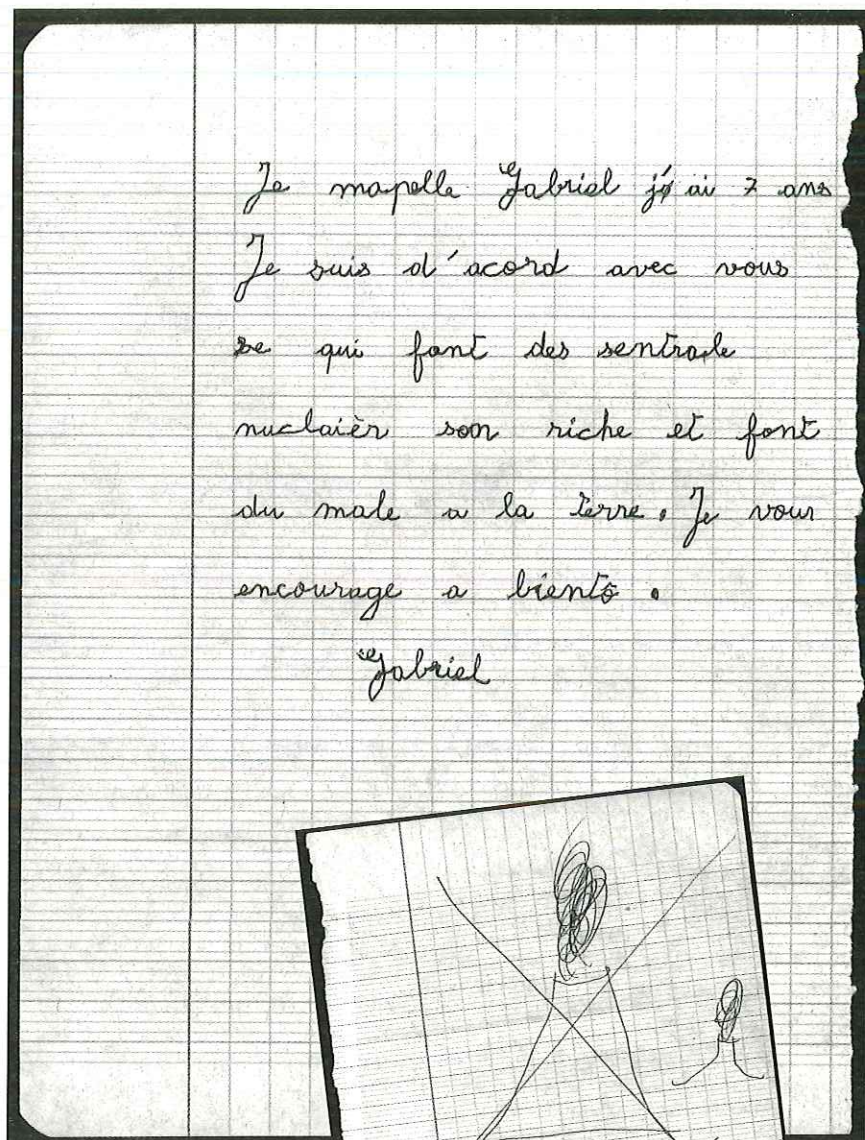 Je mapelle Gabriel j'ai 7 ans
Je suis d'acord avec vous
se qui font des sentrale
nuclaièr son riche et font
du male a la terre. Je vous
encourage a biento.
Gabriel